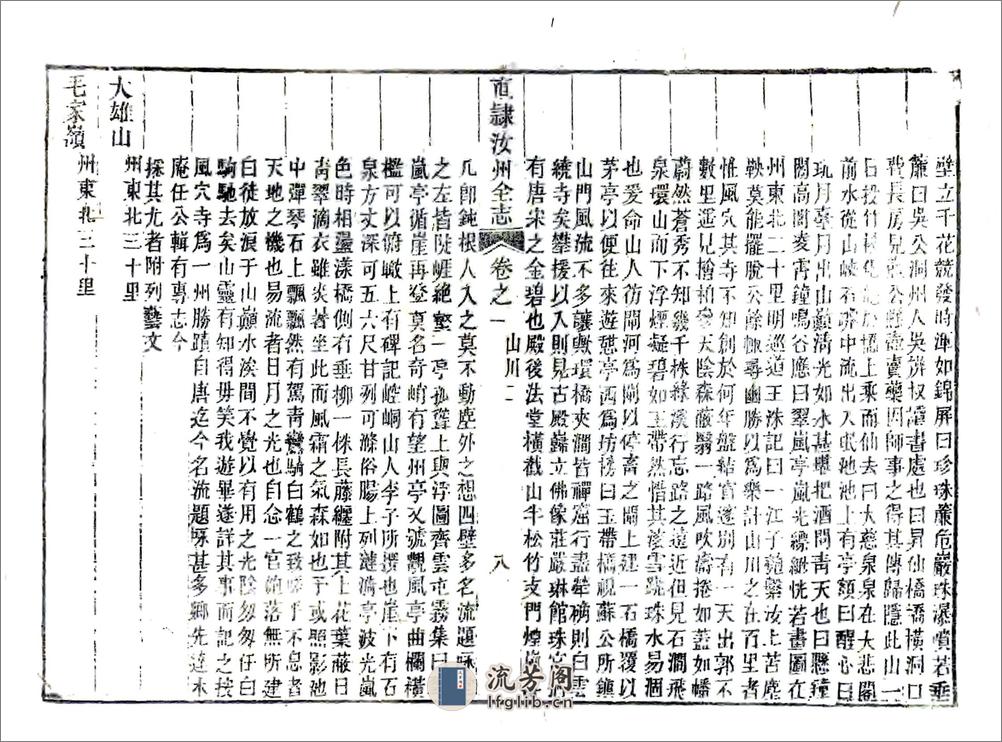 壁立千花競發時渾如錦屏曰珍珠簾危巖珠瀑噴若垂
簾曰吳公洞州人吳讀書處也曰昇仙橋橫洞口
費長房見壺公賣藥因師事之得其傳歸隱此山一
日投竹杖化龍於橋上乘而仙去曰大慈泉泉在大悲閣
前水從山峽石罅中流出入氓池池上有亭額曰醒心曰
玩月臺月出山巔清光如水甚曠把酒問青天也曰懸鐘
閣高閣凌霄鐘鳴谷應曰翠嵐亭嵐光縹緲恍若畫圖在
州東北二十里明巡道王洙記曰一江子繫汝上苦塵
鞅莫能擺脫公餘輒尋幽勝以為樂計山川之在百里者
惟風穴其寺不知創於何年盤結官蓬別有一天出郭不
數里遥見檜柏參天陰森蔽翳一路風吹濤捲如蓋如幡
蔚然蒼秀不知幾千株緣溪行忘路之遠近但見石澗飛
泉環山而下浮煙凝碧如玉帶然惜其落雪跳珠水易涸
也爰命山人彷閘河為閘以停畜之閘上建一石橋覆以
茅亭以便往來遊憩亭西為坊榜曰玉帶橋視蘇公所鎮
山門風流不多讓歟環橋夾澗皆禪窟行盡則白雲
繞寺矣攀援以入則見古殿巋立佛像莊嚴琳館珠宮
有唐宋之金碧也殿後法堂橫截山半松竹支門煙
直隸汝州全志
卷之一 山川二
八
凡即鈍根人入之莫不動塵外之想四壁多名流題詠
之左皆陡崕絕壑一亭孤聳上與浮圖齊雲屯霧集曰
嵐亭循崖再登莫名奇峭有望州亭又號觀風亭曲欄橫
檻可以俯瞰上有碑記崆峒山人李子所撰也崖下有石
泉方丈深可五六尺甘冽可滌俗腸上列漣漪亭波光嵐
色時相盪漾橋側有垂柳一株長藤纏附其上花葉蔽日
青翠滴衣雖炎暑坐此而風霜之氣森如也于或照影池
中彈琴石上飄飄然有駕青鸞騎白鶴之致嗟乎不息者
天地之機也易流者日月之光也自念一官匏落無所建
白徒放浪于山巔水涘間不覺以有用之光陰匆匆任白
駒馳去矣山靈有知得毋笑我遊畢遂詳其事而記之按
風穴寺為一州勝蹟自唐迄今名流題咏甚多鄉先達木
庵任公輯有專志今
採其尤者附列藝文
大雄山 州東北三十里
毛家嶺 州東北二十里
流芳閣
lfglib.cn